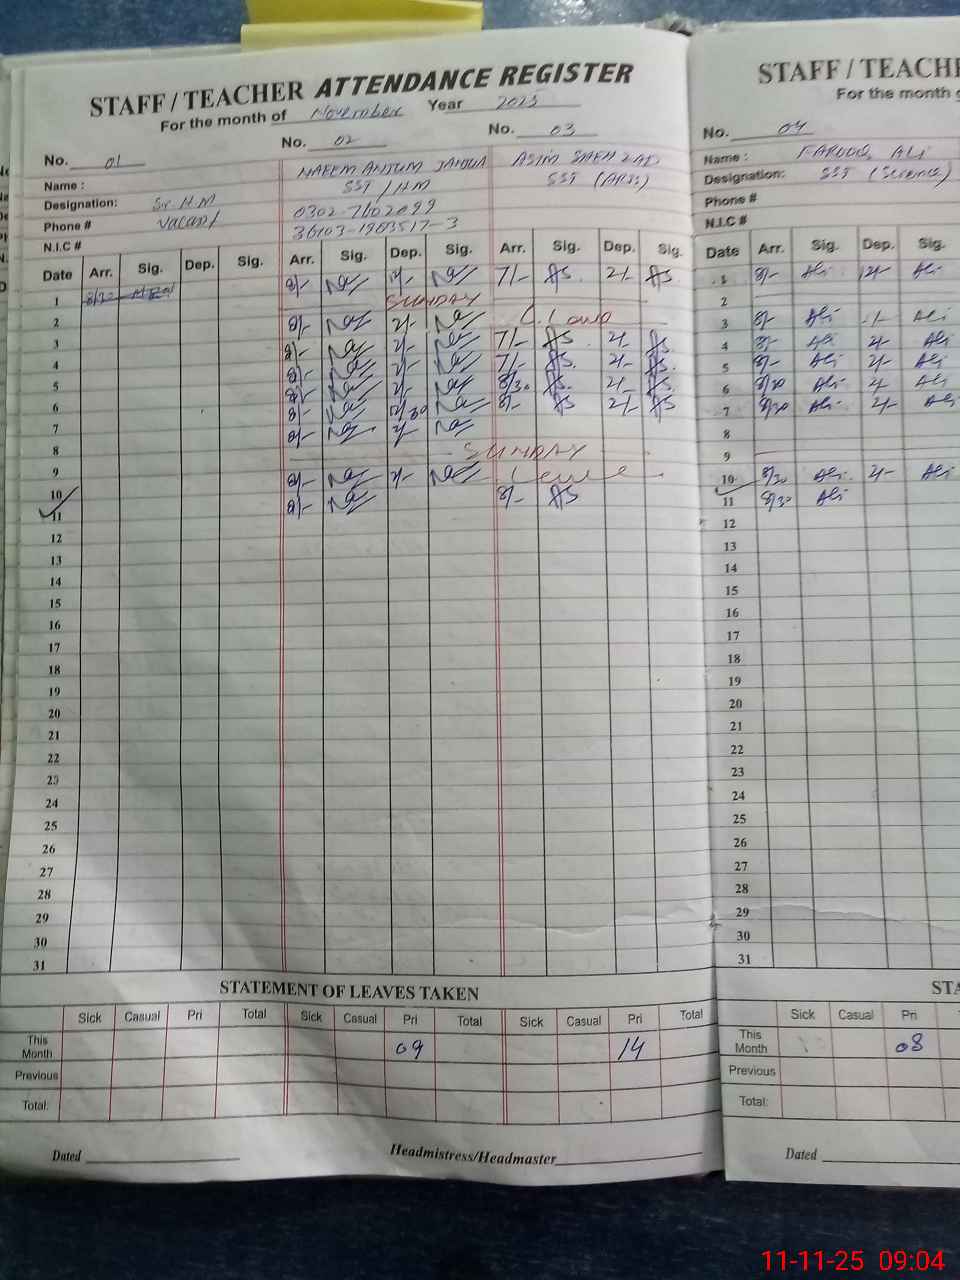 STAFF / TEACHER ATTENDANCE REGISTER
For the month of November Year 2025
No. 01 No. 02 No. 03
Name : NAEEM ANJUM JANJUA ASIM SHEHZAD
Designation: Sr. H.M SST / HM SST (ARTS)
Phone # Vacant 0302-7602099
N.I.C # 36103-1963517-3
Date Arr. Sig. Dep. Sig. Arr. Sig. Dep. Sig. Arr. Sig. Dep. Sig.
1 8/- 2/- 7/- AS 2/- AS
2 SUNDAY
3 8/- 2/- C. Leave
4 8/- 2/- 7/- AS 2/- AS
5 8/- 2/- 7/- AS 2/- AS
6 8/- 2/- 8/30 AS 2/- AS
7 8/- 12/30 8/- AS 2/- AS
8 8/- 2/-
9 SUNDAY
10 8/- 2/- Leave
11 8/- 8/- AS
12
13
14
15
16
17
18
19
20
21
22
23
24
25
26
27
28
29
30
31
STATEMENT OF LEAVES TAKEN
Sick Casual Pri Total Sick Casual Pri Total Sick Casual Pri Total
This Month 09 14
Previous
Total:
Dated Headmistress/Headmaster
STAFF / TEACHE
For the month
No. 04
Name : FAROOQ ALI
Designation: SST (Science)
Phone #
N.I.C #
Date Arr. Sig. Dep. Sig.
1 8/- Ali 12/- Ali
2
3 8/- Ali Ali
4 8/- Ali 2/- Ali
5 8/- Ali 2/- Ali
6 8/30 Ali 2/- Ali
7 8/30 Ali 2/- Ali
8
9
10 8/30 Ali 2/- Ali
11 8/30 Ali
12
13
14
15
16
17
18
19
20
21
22
23
24
25
26
27
28
29
30
31
STA
Sick Casual Pri
This Month 08
Previous
Total:
Dated
11-11-25 09:04